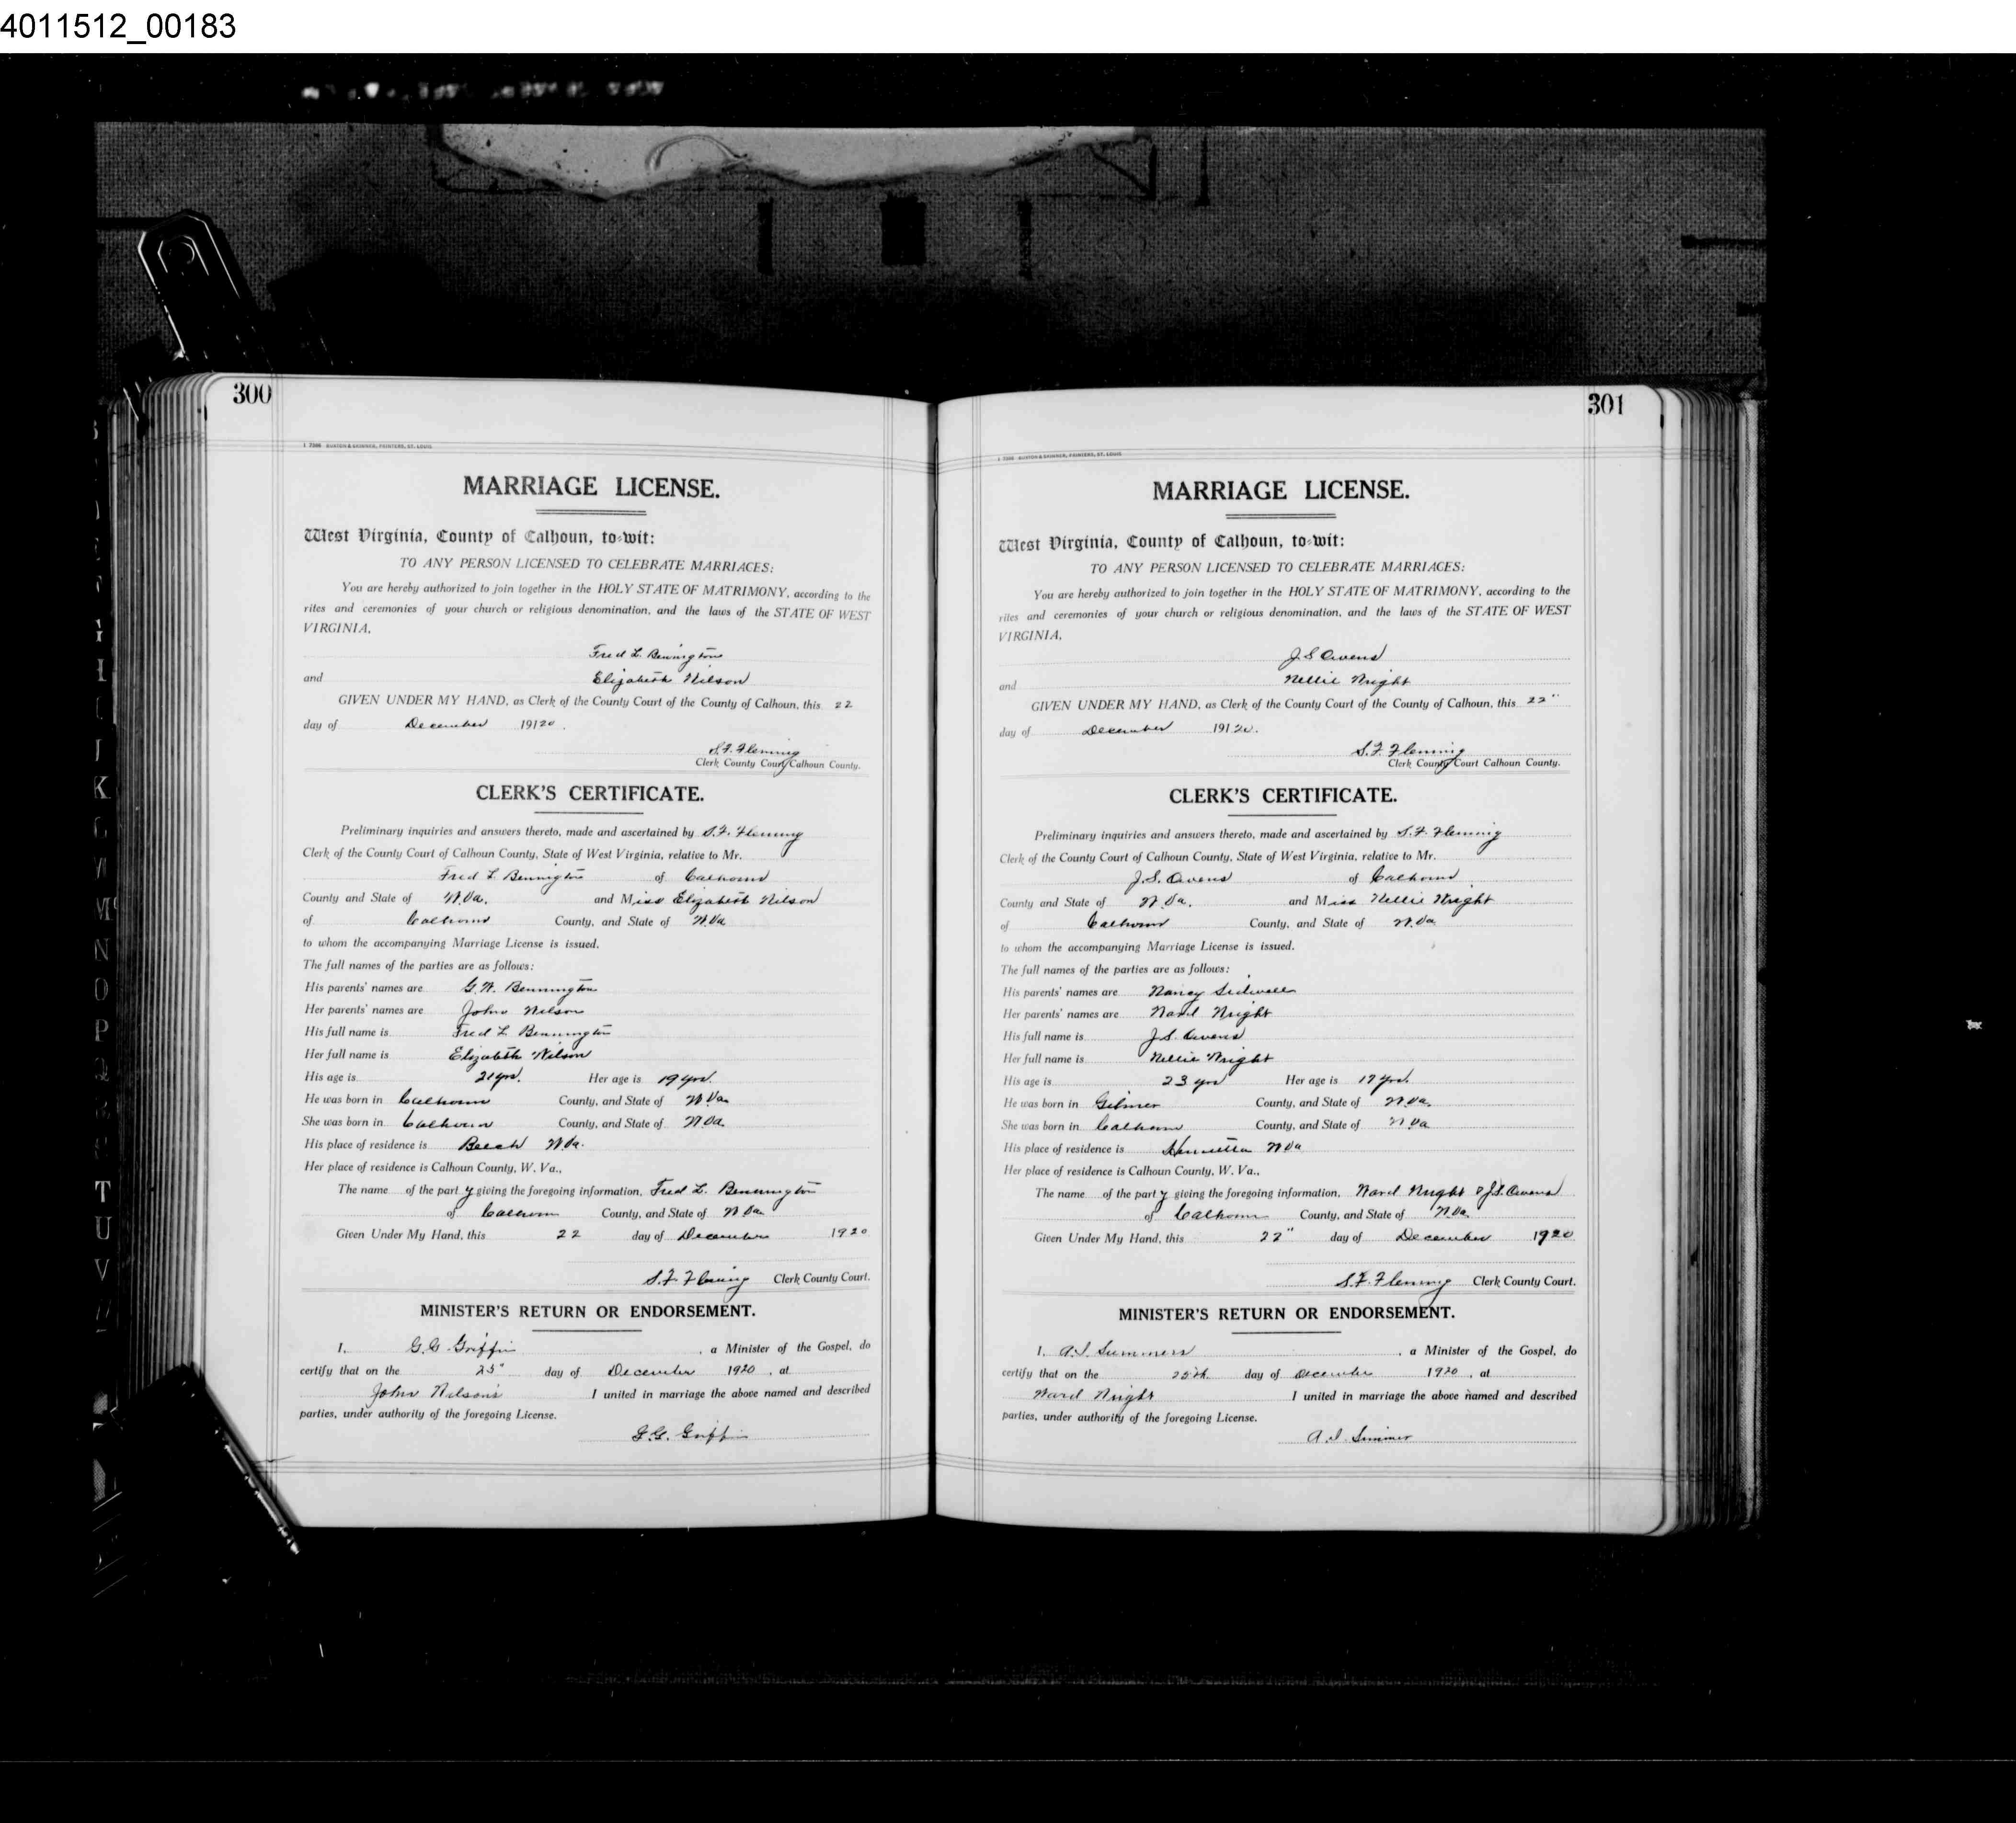 4011512_00183
300
I 7398 BUXTON & SKINNER, PRINTERS, ST. LOUIS
MARRIAGE LICENSE.
West Virginia, County of Calhoun, to-wit:
TO ANY PERSON LICENSED TO CELEBRATE MARRIAGES:
You are hereby authorized to join together in the HOLY STATE OF MATRIMONY, according to the
rites and ceremonies of your church or religious denomination, and the laws of the STATE OF WEST
VIRGINIA,
Fred L. Bennington
and Elizabeth Wilson
GIVEN UNDER MY HAND, as Clerk of the County Court of the County of Calhoun, this 22
day of December 19120.
S.F. Fleming
Clerk County Court Calhoun County.
CLERK'S CERTIFICATE.
Preliminary inquiries and answers thereto, made and ascertained by S.F. Fleming
Clerk of the County Court of Calhoun County, State of West Virginia, relative to Mr.
Fred L. Bennington of Calhoun
County and State of W.Va. and Miss Elizabeth Wilson
of Calhoun County, and State of W.Va
to whom the accompanying Marriage License is issued.
The full names of the parties are as follows:
His parents' names are G.W. Bennington
Her parents' names are John Wilson
His full name is Fred L Bennington
Her full name is Elizabeth Wilson
His age is 21 yrs. Her age is 19 yrs.
He was born in Calhoun County, and State of W.Va
She was born in Calhoun County, and State of W.Va.
His place of residence is Beech W.Va.
Her place of residence is Calhoun County, W. Va.,
The name of the party giving the foregoing information, Fred L. Bennington
of Calhoun County, and State of W Va
Given Under My Hand, this 22 day of December 1920
S.F. Fleming Clerk County Court.
MINISTER'S RETURN OR ENDORSEMENT.
I, G.G. Griffin , a Minister of the Gospel, do
certify that on the 25" day of December 1920 , at
John Wilson's I united in marriage the above named and described
parties, under authority of the foregoing License.
G.G. Griffin
301
I 7398 BUXTON & SKINNER, PRINTERS, ST. LOUIS
MARRIAGE LICENSE.
West Virginia, County of Calhoun, to-wit:
TO ANY PERSON LICENSED TO CELEBRATE MARRIAGES:
You are hereby authorized to join together in the HOLY STATE OF MATRIMONY, according to the
rites and ceremonies of your church or religious denomination, and the laws of the STATE OF WEST
VIRGINIA,
J.S Owens
and Nellie Wright
GIVEN UNDER MY HAND, as Clerk of the County Court of the County of Calhoun, this 22"
day of December 19120.
S.F. Fleming
Clerk County Court Calhoun County.
CLERK'S CERTIFICATE.
Preliminary inquiries and answers thereto, made and ascertained by S.F. Fleming
Clerk of the County Court of Calhoun County, State of West Virginia, relative to Mr.
J.S. Owens of Calhoun
County and State of W.Va. and Miss Nellie Wright
of Calhoun County, and State of W.Va
to whom the accompanying Marriage License is issued.
The full names of the parties are as follows:
His parents' names are Nancy Sidwell
Her parents' names are Ward Wright
His full name is J.S. Owens
Her full name is Nellie Wright
His age is 23 yrs Her age is 17 yrs.
He was born in Gilmer County, and State of W.Va.
She was born in Calhoun County, and State of W Va
His place of residence is Henrietta W Va
Her place of residence is Calhoun County, W. Va.,
The name of the party giving the foregoing information, Ward Wright & J.S. Owens
of Calhoun County, and State of W.Va
Given Under My Hand, this 22" day of December 1920
S.F. Fleming Clerk County Court.
MINISTER'S RETURN OR ENDORSEMENT.
I, A.I. Summers , a Minister of the Gospel, do
certify that on the 25th day of December 1920 , at
Ward Wright I united in marriage the above named and described
parties, under authority of the foregoing License.
A.I. Summer
K
M
N
O
P
T
U
V